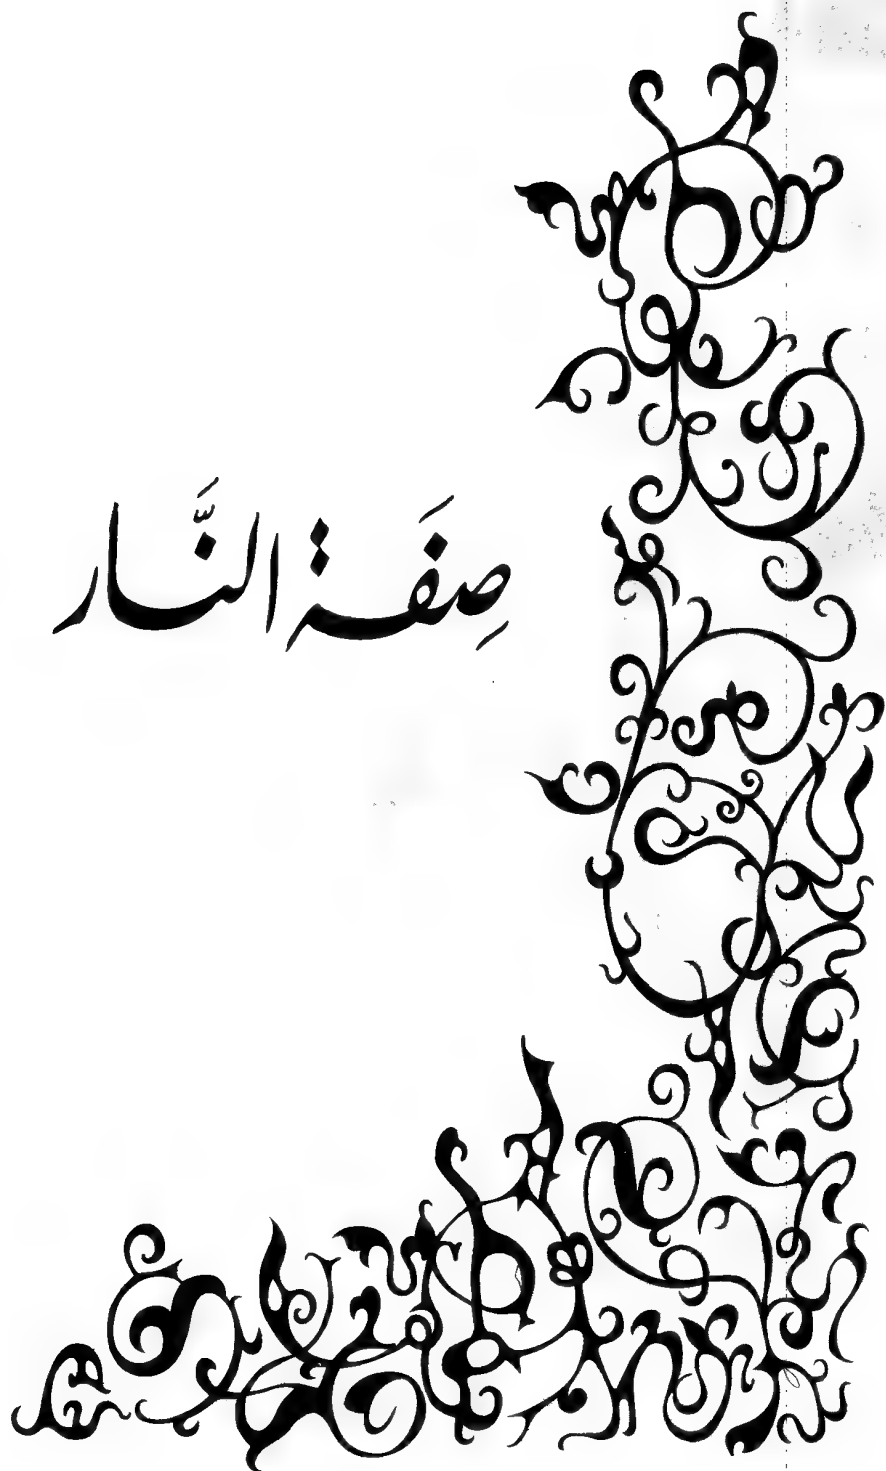 صِفَة النَّار